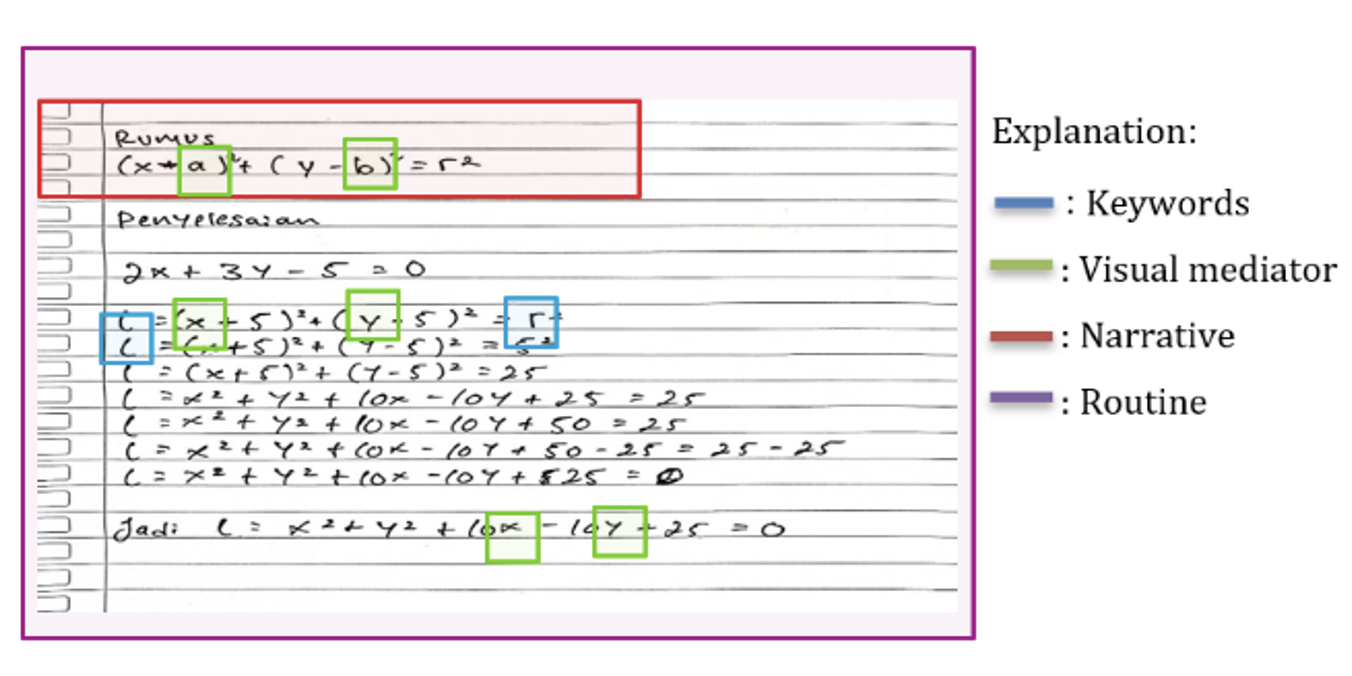 Rumus
(x - a)² + (y - b)² = r²
Penyelesaian
2x + 3y - 5 = 0
L = (x + 5)² + (y - 5)² = r²
L = (x + 5)² + (y - 5)² = 5²
L = (x + 5)² + (y - 5)² = 25
L = x² + y² + 10x - 10y + 25 = 25
L = x² + y² + 10x - 10y + 50 = 25
L = x² + y² + 10x - 10y + 50 - 25 = 25 - 25
L = x² + y² + 10x - 10y + 25 = 0
Jadi L = x² + y² + 10x - 10y + 25 = 0
Explanation:
: Keywords
: Visual mediator
: Narrative
: Routine